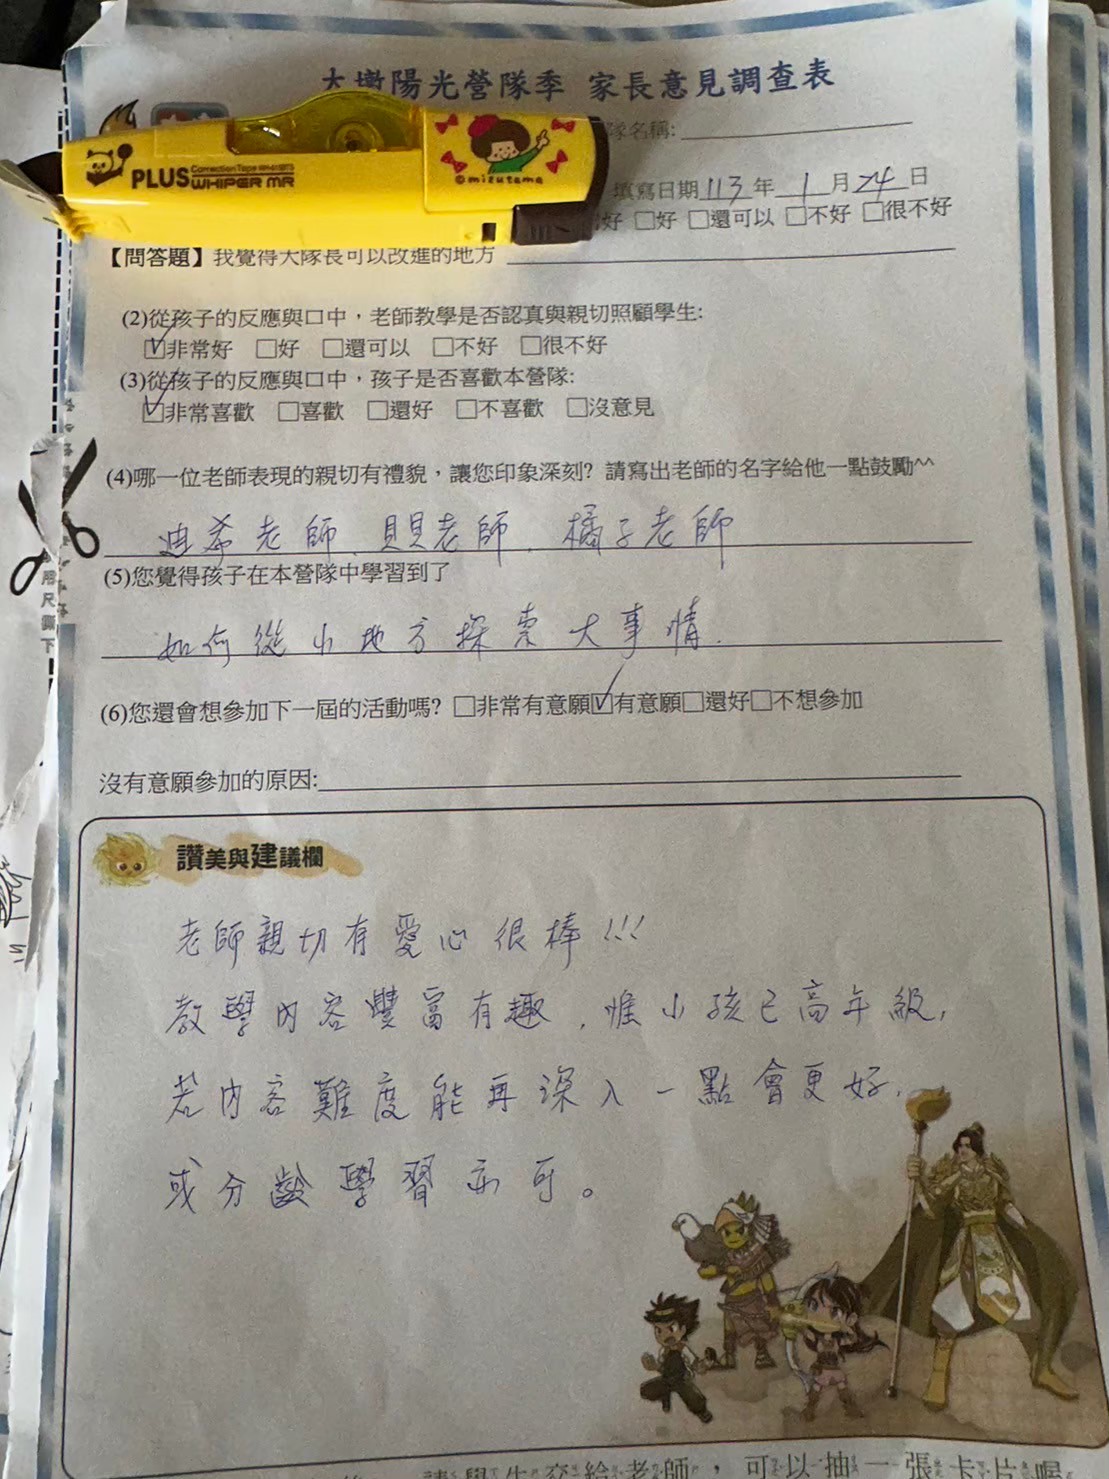 大墩陽光營隊季 家長意見調查表
隊名稱:
填寫日期113年1月24日
好 □好 □還可以 □不好 □很不好
PLUS Correction Tape WHIPER MR
©mizutama
【問答題】我覺得大隊長可以改進的地方
(2)從孩子的反應與口中，老師教學是否認真與親切照顧學生:
☑非常好 □好 □還可以 □不好 □很不好
(3)從孩子的反應與口中，孩子是否喜歡本營隊:
☑非常喜歡 □喜歡 □還好 □不喜歡 □沒意見
(4)哪一位老師表現的親切有禮貌，讓您印象深刻? 請寫出老師的名字給他一點鼓勵^^
迪希老師、貝貝老師、橘子老師
(5)您覺得孩子在本營隊中學習到了
如何從小地方探索大事情.
(6)您還會想參加下一屆的活動嗎? □非常有意願☑有意願□還好□不想參加
沒有意願參加的原因:
讚美與建議欄
老師親切有愛心很棒!!!
教學內容豐富有趣，惟小孩已高年級，
若內容難度能再深入一點會更好，
或分齡學習亦可。
請學生交給老師，可以抽一張卡片喔
用尺撕下